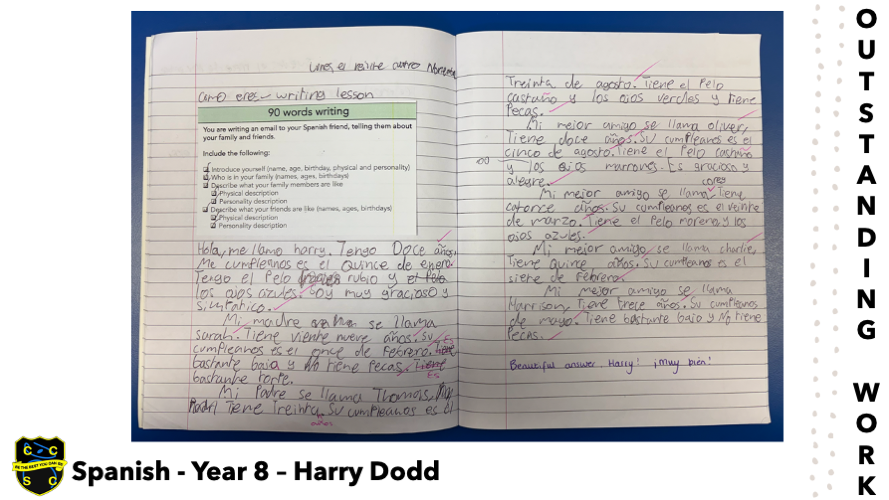 como eres - writing lesson
90 words writing
You are writing an email to your Spanish friend, telling them about
your family and friends.
Include the following:
Introduce yourself (name, age, birthday, physical and personality)
Who is in your family (names, ages, birthdays)
Describe what your family members are like
Physical description
Personality description
Describe what your friends are like (names, ages, birthdays)
Physical description
Personality description
Hola, me llamo harry. Tengo Doce años.
Me cumpleanos es el Quince de enero.
Tengo el Pelo rubio y el Pelo
los ojos azules. Soy muy gracioso y
simpatico.
Mi madre se llama
sarah. Tiene viente nueve años. Su
cumpleanos es el once de Febrero. Tiene Es
bastante bajo y No tiene Pecas. Tiene
Es
bastante forte.
Mi Padre se llama Thomas,
Tiene Treinta. Su cumpleanos es el
años
Treinta de agosto. Tiene el Pelo
castaño y los ojos verdes y tiene
Pecas.
Mi mejor amigo se llama oliver,
Tiene doce años. Su cumpleanos es el
cinco de agosto. Tiene el Pelo castaño
100
y los ojos marrones. Es gracioso y
alegre.
corey
Mi mejor amigo se llama Tiene
catorce años. Su cumpleanos es el veinte
de marzo. Tiene el Pelo moreno y los
ojos azules.
Mi mejor amigo se llama charlie,
Tiene quince años. Su cumpleanos es el
siete de Febrero.
Mi mejor amigo se llama
Harrison, Tiene trece años. Su cumpleanos
de mayo. Tiene bastante bajo y No tiene
Pecas.
Beautiful answer, Harry! ¡Muy bien!
OUTSTANDING WORK
C C
BE THE BEST YOU CAN BE
S C
Spanish - Year 8 – Harry Dodd